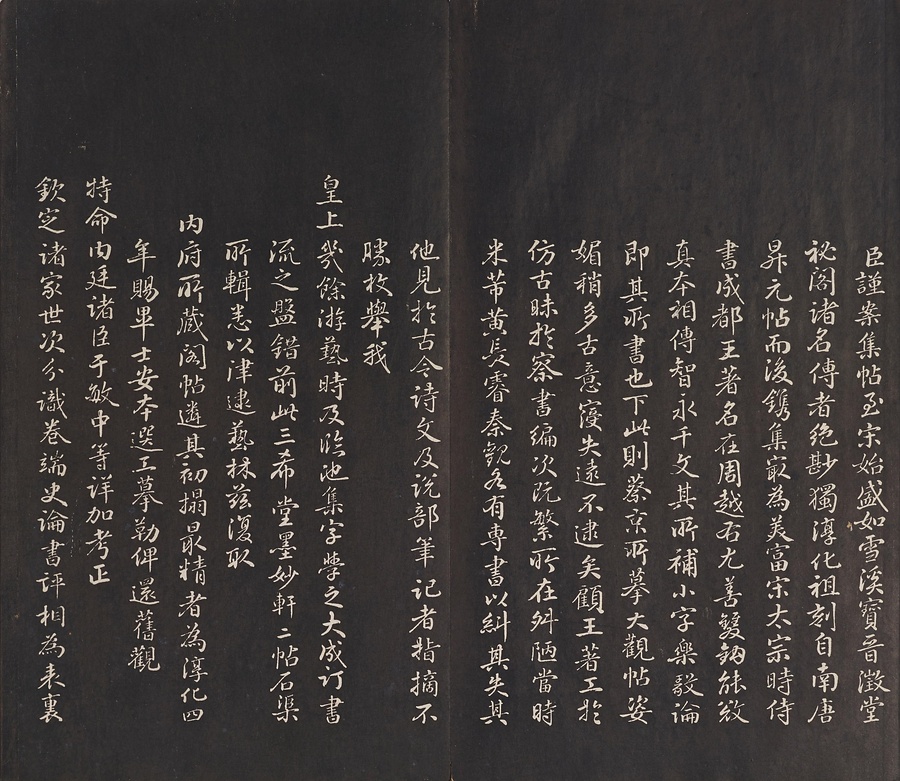 臣謹案集帖至宋始盛如雪溪寶晉澂堂
祕閣諸名傳者絶尠獨淳化祖刻自南唐
昇元帖而後鐫集㝡為美富宋太宗時侍
書成都王著名在周越右尤善雙鉤能效
真本相傳智永千文其所補小字樂毅論
即其所書也下此則蔡京所摹大觀帖姿
媚稍多古意寖失遠不逮矣顧王著工於
仿古昧於察書編次既繁所在舛陋當時
米芾黃長睿秦觀各有專書以糾其失其
他見於古今詩文及說部筆記者指摘不
勝枚舉我
皇上幾餘游藝時及臨池集字學之大成訂書
流之盤錯前此三希堂墨妙軒二帖石渠
所輯悉以津逮藝林茲復取
內府所藏閣帖遴其初搨最精者為淳化四
年賜畢士安本選工摹勒俾還舊觀
特命內廷諸臣于敏中等詳加考正
欽定諸家世次分識卷端史論書評相為表裏